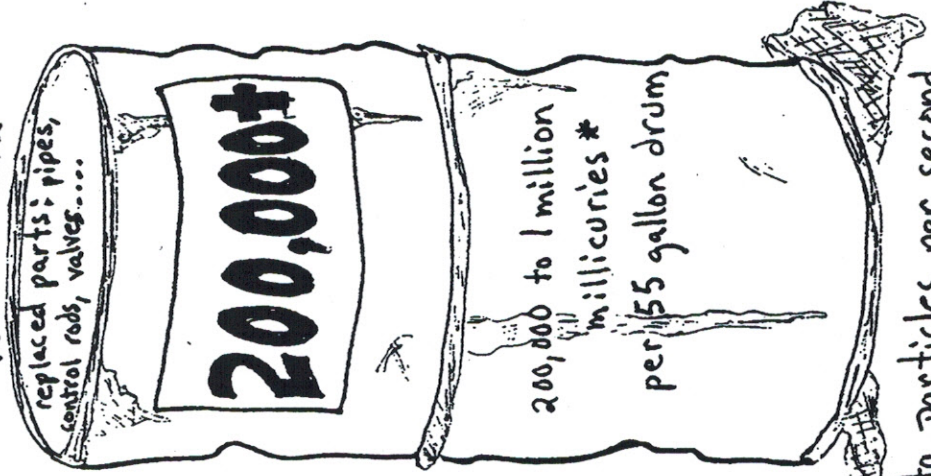 replaced parts; pipes,
control rods, valves....
200,000+
200,000 to 1 million
millicuries*
per 55 gallon drum
particles per second